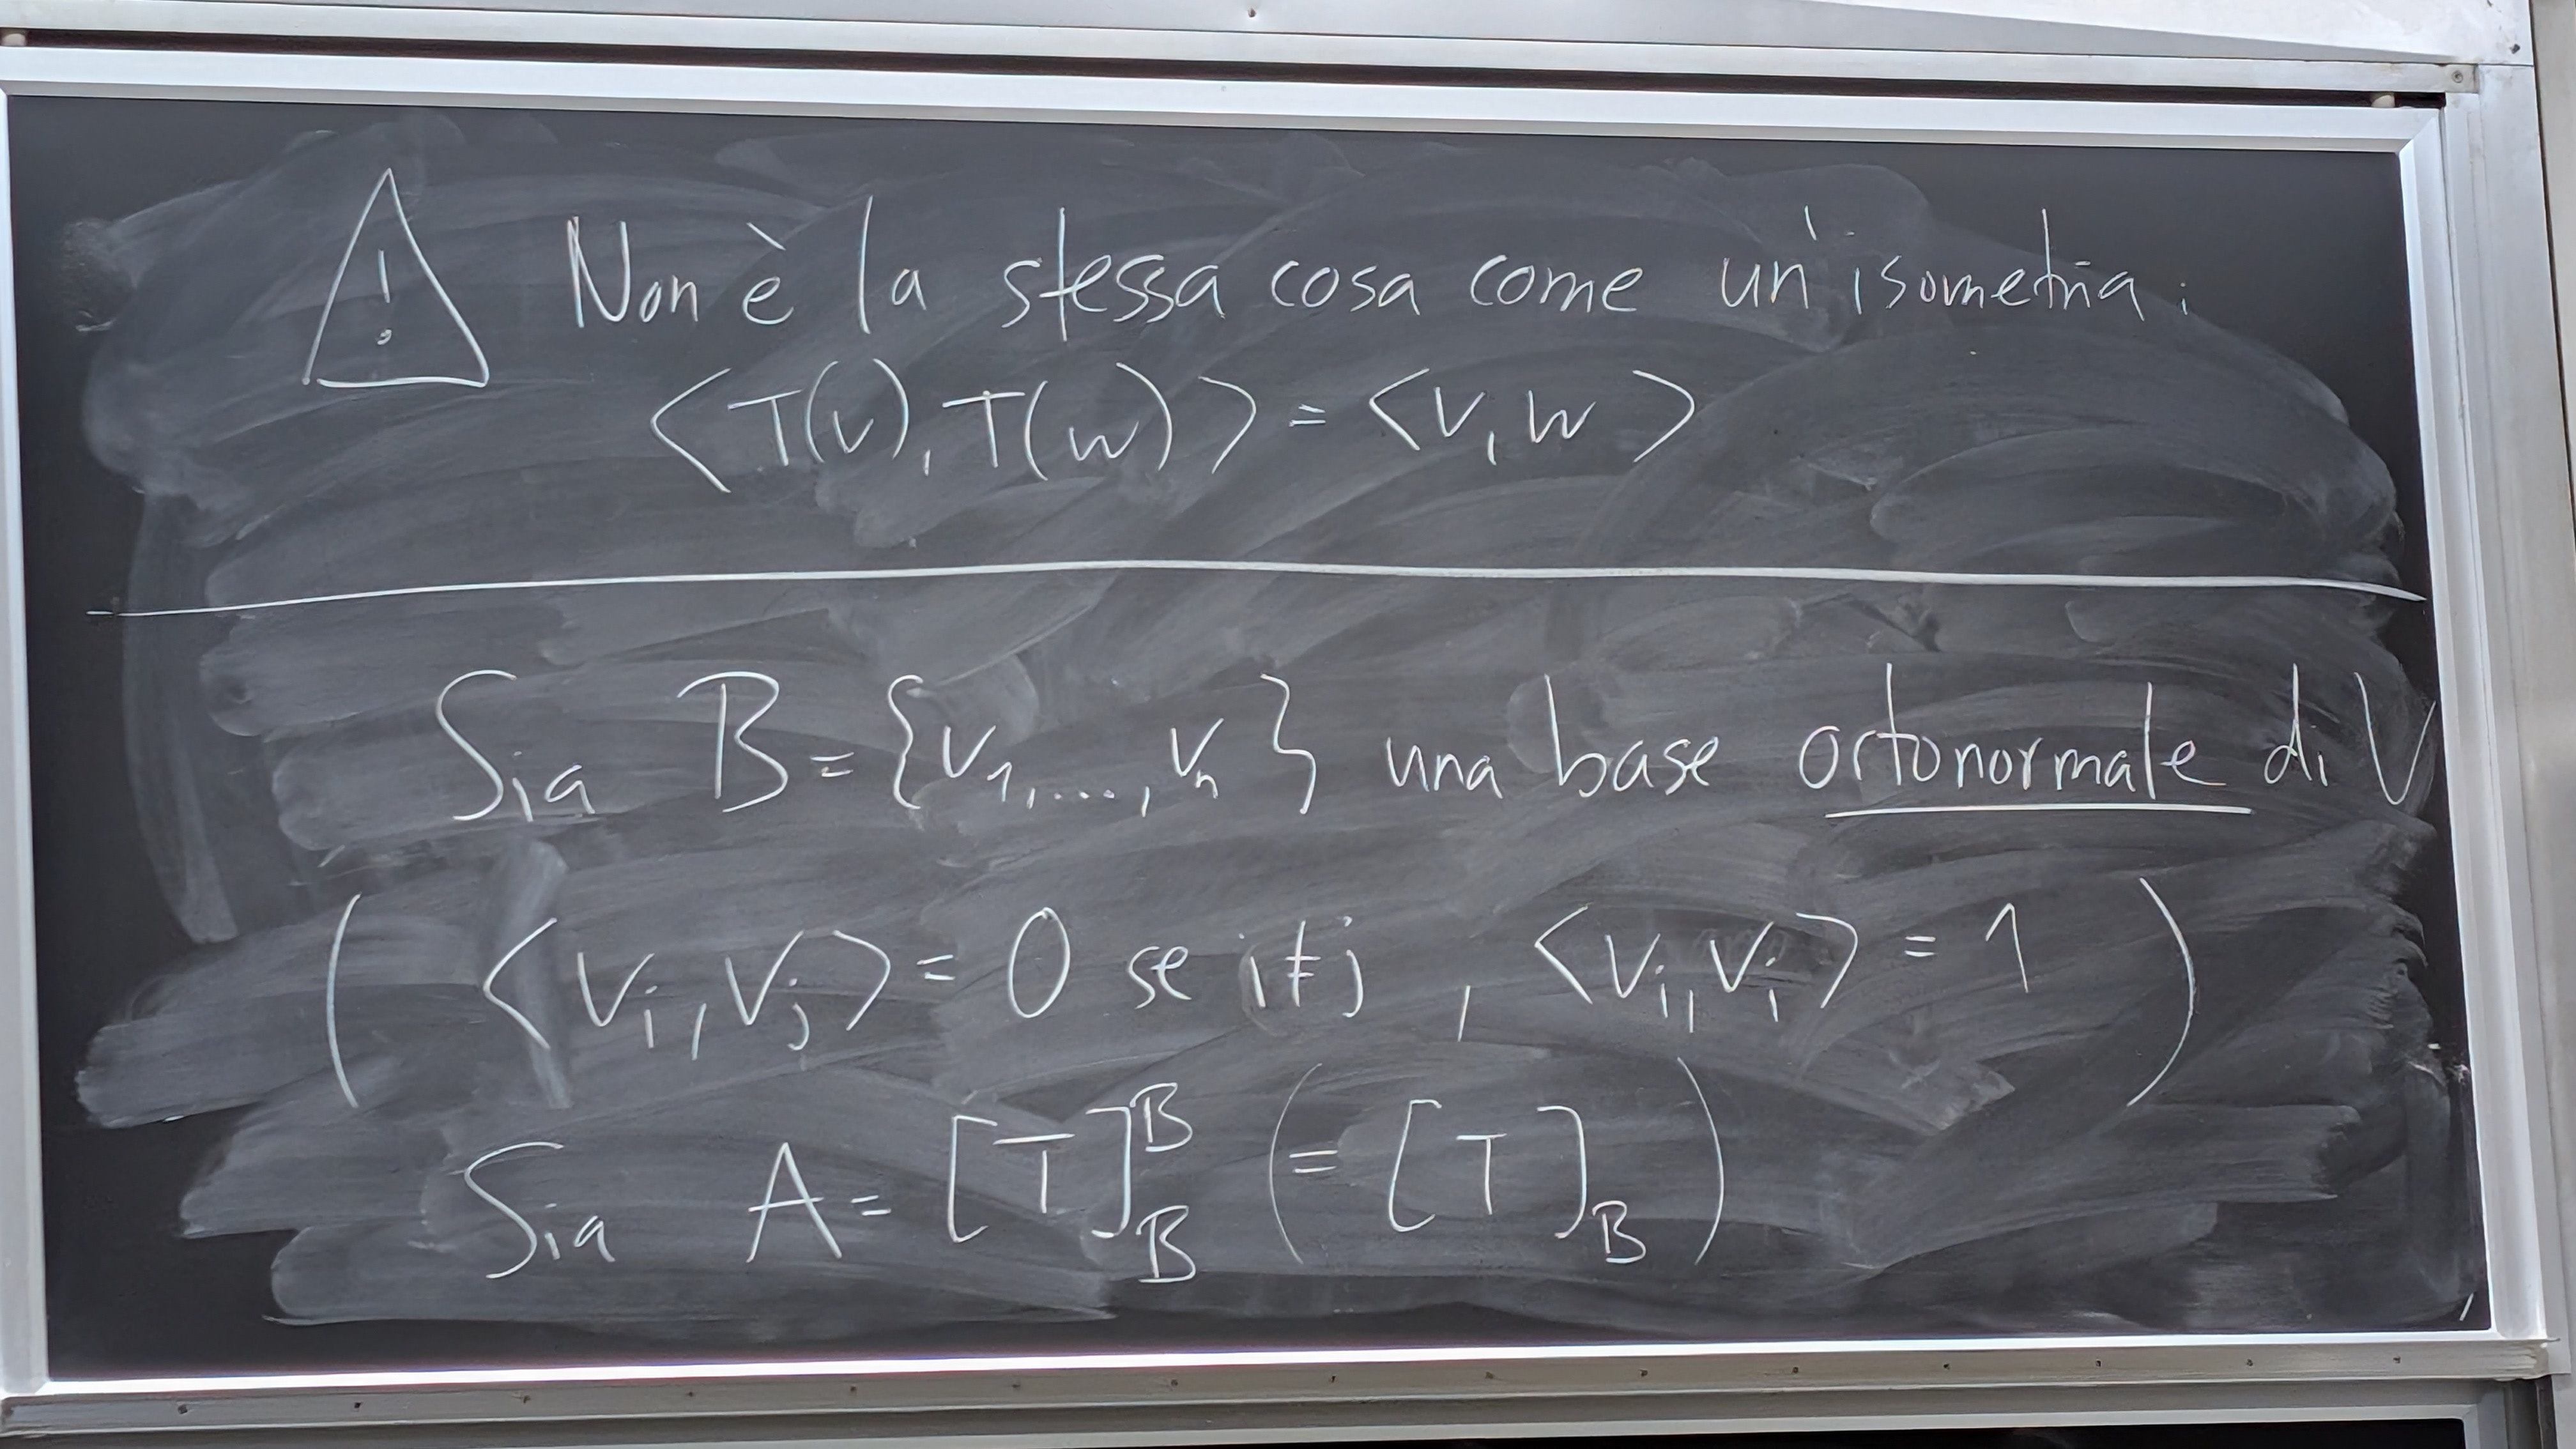 ! Non è la stessa cosa come un'isometria:
<T(v), T(w)> = <v, w>
Sia B = {v₁, ..., vₙ} una base ortonormale di V
( <vᵢ, vⱼ> = 0 se i ≠ j , <vᵢ, vᵢ> = 1 )
Sia A = [T]_B^B ( = [T]_B )